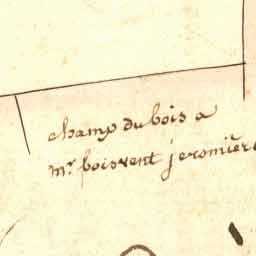 champ du bois a
mr. boisvent jeromiere